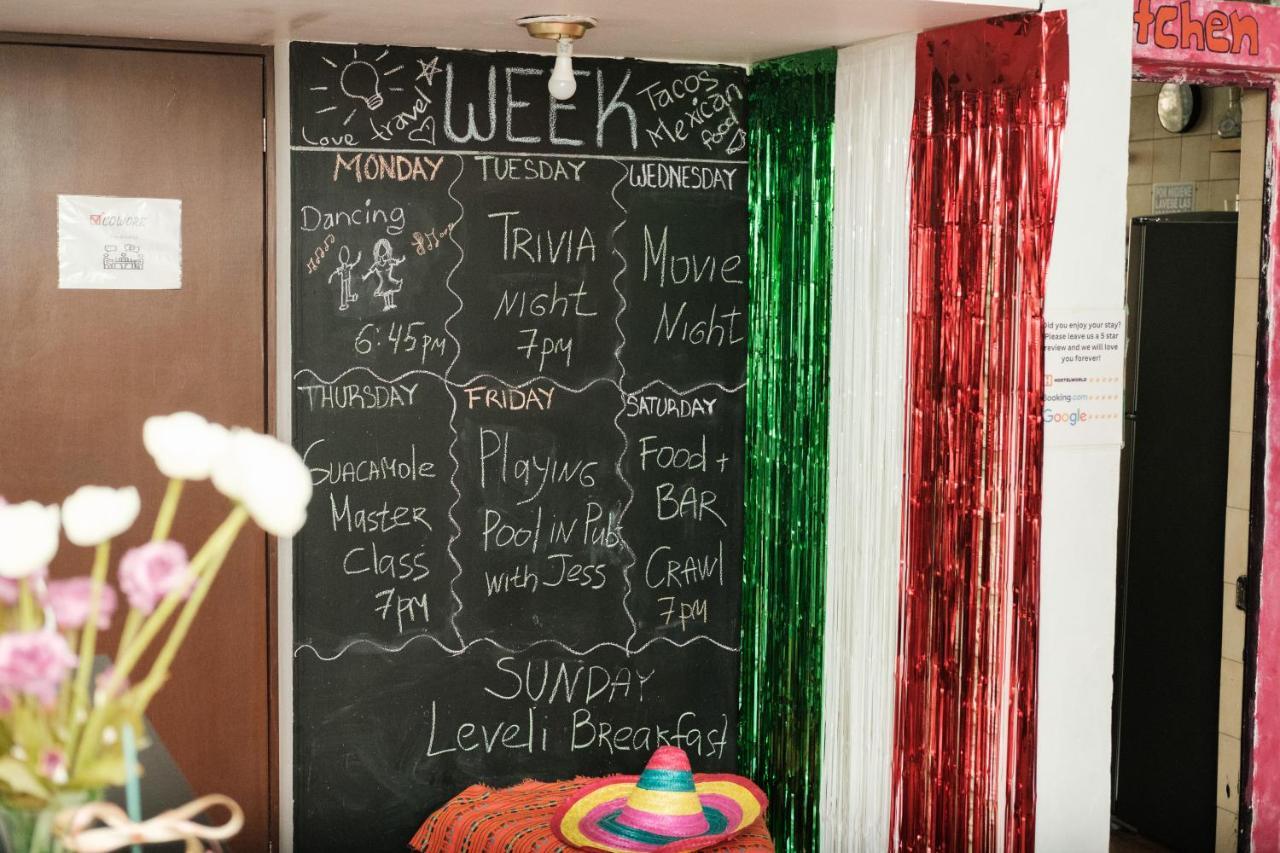 WEEK
Love travel
Tacos
Mexican
food
MONDAY
Dancing
6:45pm
TUESDAY
TRIVIA
NIGHT
7pm
WEDNESDAY
Movie
Night
THURSDAY
GUACAMOLE
Master
Class
7pm
FRIDAY
Playing
Pool in Pubs
with Jess
SATURDAY
Food +
BAR
CRAWL
7pm
SUNDAY
Leveli Breakfast
COWORK
tchen
Did you enjoy your stay?
Please leave us a 5 star
review and we will love
you forever!
HOSTELWORLD
Booking.com
Google